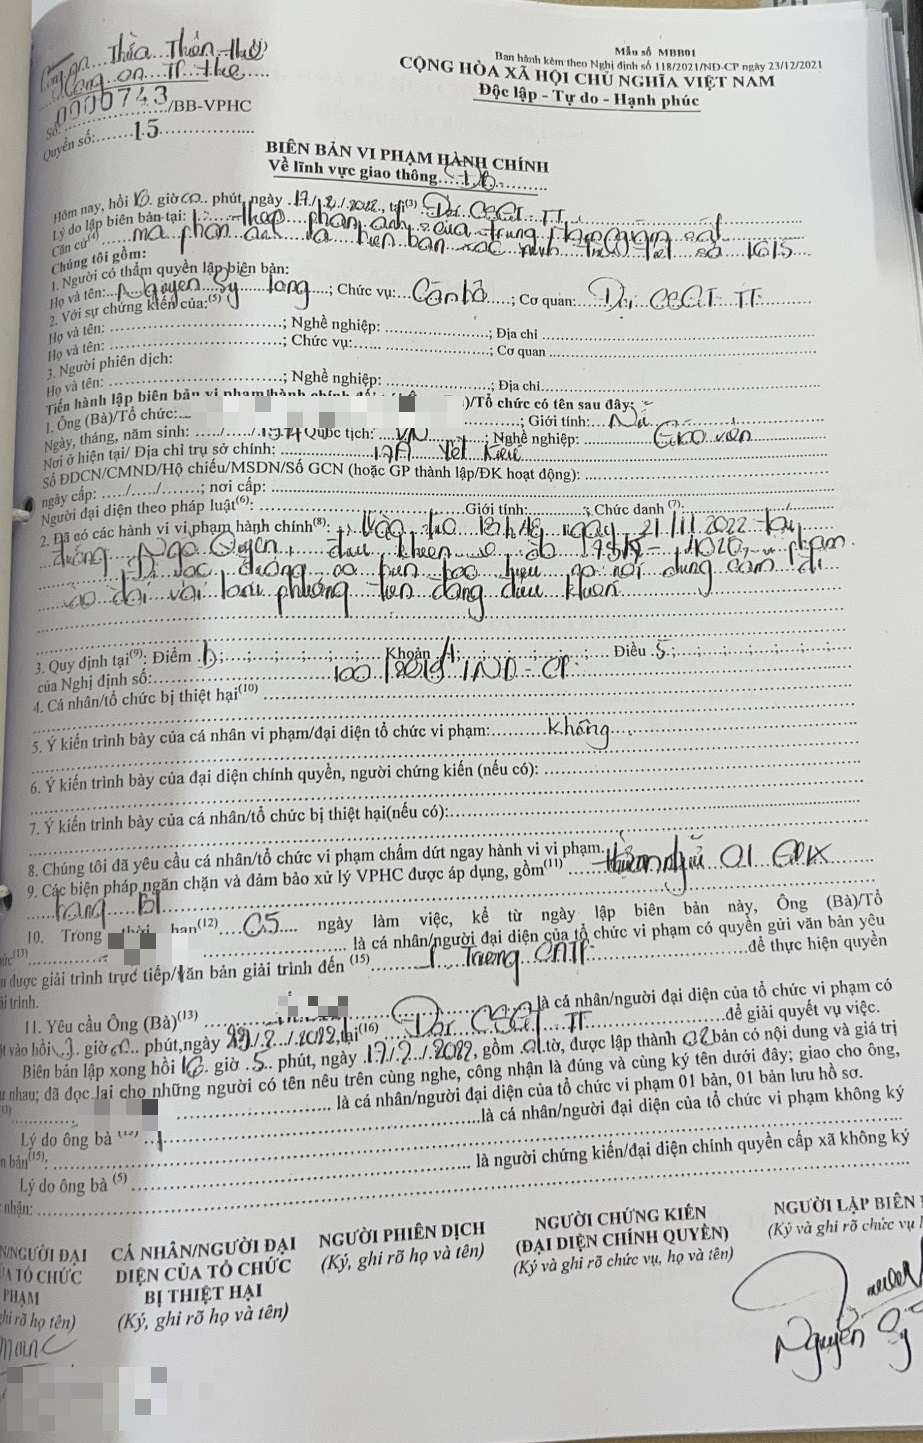 Mẫu số MBB01
Ban hành kèm theo Nghị định số 118/2021/NĐ-CP ngày 23/12/2021
CỘNG HÒA XÃ HỘI CHỦ NGHĨA VIỆT NAM
Độc lập - Tự do - Hạnh phúc
Thừa Thiên Huế
Công an TP Huế
Số: 0000743/BB-VPHC
Quyển số: 15
BIÊN BẢN VI PHẠM HÀNH CHÍNH
Về lĩnh vực giao thông ĐB
Hôm nay, hồi 16 giờ 00 phút, ngày 17/2/2022, tại(3) Đội CSGT TT
Lý do lập biên bản tại:
Căn cứ(4)
Chúng tôi gồm:
1. Người có thẩm quyền lập biên bản:
Họ và tên: Nguyễn Sỹ ; Chức vụ: Cán bộ ; Cơ quan: Đội CSGT TT
2. Với sự chứng kiến của:(5)
Họ và tên: ; Nghề nghiệp: ; Địa chỉ
Họ và tên: ; Chức vụ: ; Cơ quan
3. Người phiên dịch:
Họ và tên: ; Nghề nghiệp: ; Địa chỉ
Tiến hành lập biên bản vi phạm hành chính )/Tổ chức có tên sau đây:
1. Ông (Bà)/Tổ chức: ; Giới tính: Nữ
Ngày, tháng, năm sinh: / / 1974 Quốc tịch: VN ; Nghề nghiệp: Giáo viên
Nơi ở hiện tại/ Địa chỉ trụ sở chính: Yết Kiêu
Số ĐDCN/CMND/Hộ chiếu/MSDN/Số GCN (hoặc GP thành lập/ĐK hoạt động):
ngày cấp: / / ; nơi cấp:
Người đại diện theo pháp luật(6): Giới tính: ; Chức danh (7):
2. Đã có các hành vi vi phạm hành chính(8): Vào lúc ngày 21/1/2022 tại
đường Ngô Quyền, điều khiển xe ô tô vi phạm
Đi vào đường có biển báo hiệu có nội dung cấm đi
vào đối với loại phương tiện đang điều khiển
3. Quy định tại(9): Điểm b ; Khoản 4 ; Điều 5
của Nghị định số: 100/2019/NĐ-CP
4. Cá nhân/tổ chức bị thiệt hại(10)
5. Ý kiến trình bày của cá nhân vi phạm/đại diện tổ chức vi phạm: không
6. Ý kiến trình bày của đại diện chính quyền, người chứng kiến (nếu có):
7. Ý kiến trình bày của cá nhân/tổ chức bị thiệt hại(nếu có):
8. Chúng tôi đã yêu cầu cá nhân/tổ chức vi phạm chấm dứt ngay hành vi vi phạm.
9. Các biện pháp ngăn chặn và đảm bảo xử lý VPHC được áp dụng, gồm(11) 01 GPLX
hạng B1
10. Trong thời hạn(12) 05 ngày làm việc, kể từ ngày lập biên bản này, Ông (Bà)/Tổ
là cá nhân/người đại diện của tổ chức vi phạm có quyền gửi văn bản yêu
được giải trình trực tiếp/văn bản giải trình đến (15) Trưởng CATP để thực hiện quyền
trình.
11. Yêu cầu Ông (Bà)(13) là cá nhân/người đại diện của tổ chức vi phạm có
vào hồi giờ phút, ngày /2/2022, tại(16) Đội CSGT TT để giải quyết vụ việc.
Biên bản lập xong hồi 16 giờ 5 phút, ngày 17/2/2022, gồm 01 tờ, được lập thành 02 bản có nội dung và giá trị
nhau; đã đọc lại cho những người có tên nêu trên cùng nghe, công nhận là đúng và cùng ký tên dưới đây; giao cho ông,
là cá nhân/người đại diện của tổ chức vi phạm 01 bản, 01 bản lưu hồ sơ.
Lý do ông bà (13) là cá nhân/người đại diện của tổ chức vi phạm không ký
bản(15):
Lý do ông bà (5) là người chứng kiến/đại diện chính quyền cấp xã không ký
nhận:
NGƯỜI ĐẠI
TỔ CHỨC
PHẠM
ghi rõ họ tên)
CÁ NHÂN/NGƯỜI ĐẠI
DIỆN CỦA TỔ CHỨC
BỊ THIỆT HẠI
(Ký, ghi rõ họ và tên)
NGƯỜI PHIÊN DỊCH
(Ký, ghi rõ họ và tên)
NGƯỜI CHỨNG KIẾN
(ĐẠI DIỆN CHÍNH QUYỀN)
(Ký và ghi rõ chức vụ, họ và tên)
NGƯỜI LẬP BIÊN
(Ký và ghi rõ chức vụ
Nguyễn Sỹ